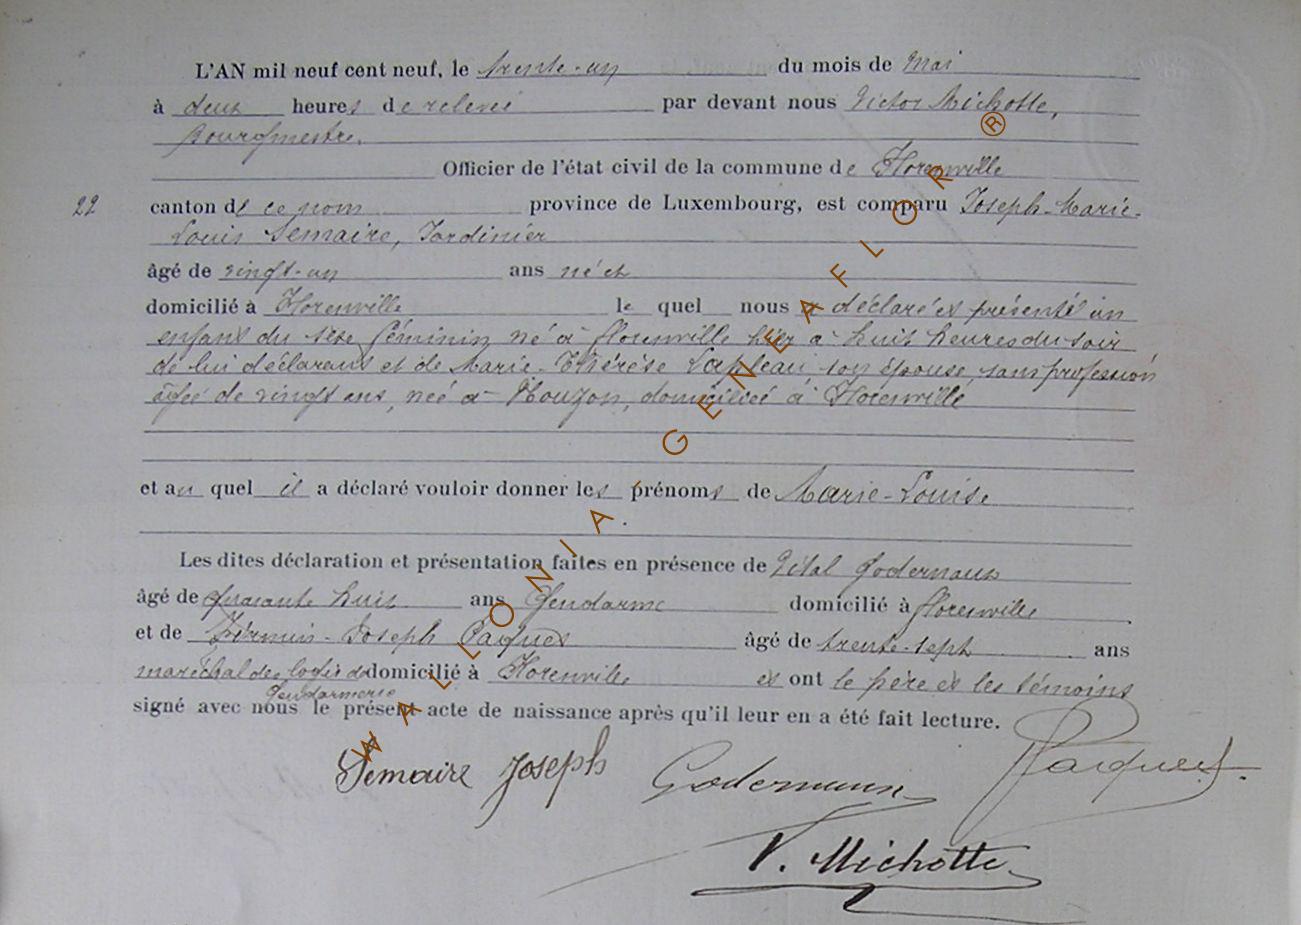 L'AN mil neuf cent neuf, le trente-un du mois de Mai
à deux heures de relevée par devant nous Victor Michotte,
Bourgmestre.
Officier de l'état civil de la commune de Florenville
22 canton de ce nom province de Luxembourg, est comparu Joseph-Marie-
Louis Semaire, Jardinier
âgé de vingt-un ans né et
domicilié à Florenville lequel nous a déclaré et présenté un
enfant du sexe féminin né à florenville hier à huit heures du soir
de lui déclarant et de Marie-Thérèse Lapleau son épouse, sans profession
âgée de vingt ans, née à Mouzon, domiciliée à Florenville
et au quel il a déclaré vouloir donner les prénoms de Marie-Louise
Les dites déclaration et présentation faites en présence de Vital Godernaux
âgé de quarante huit ans Gendarme domicilié à florenville
et de Firmin-Joseph Paquet âgé de trente-sept ans
maréchal des logis de domicilié à Florenville et ont le père et les témoins
Gendarmerie
signé avec nous le présent acte de naissance après qu'il leur en a été fait lecture.
Semaire Joseph Godernaux Paquet
V. Michotte
WALLONIA - GENEAFLOR ®